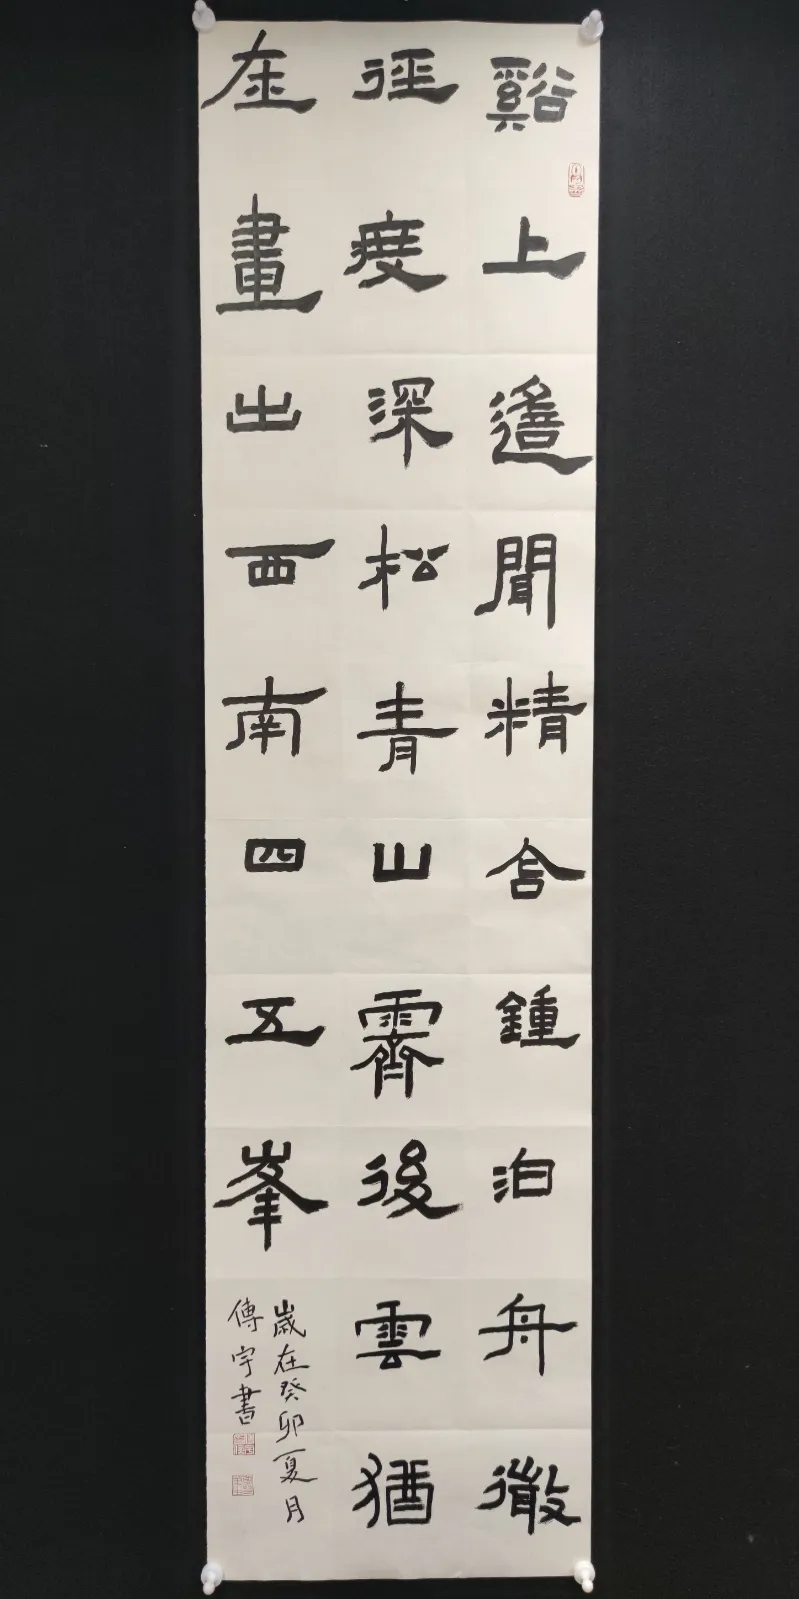 谿上遙聞精舍鍾泊舟微
徑度深松青山霽後雲猶
在畫出西南四五峯
歲在癸卯夏月
傳宇書